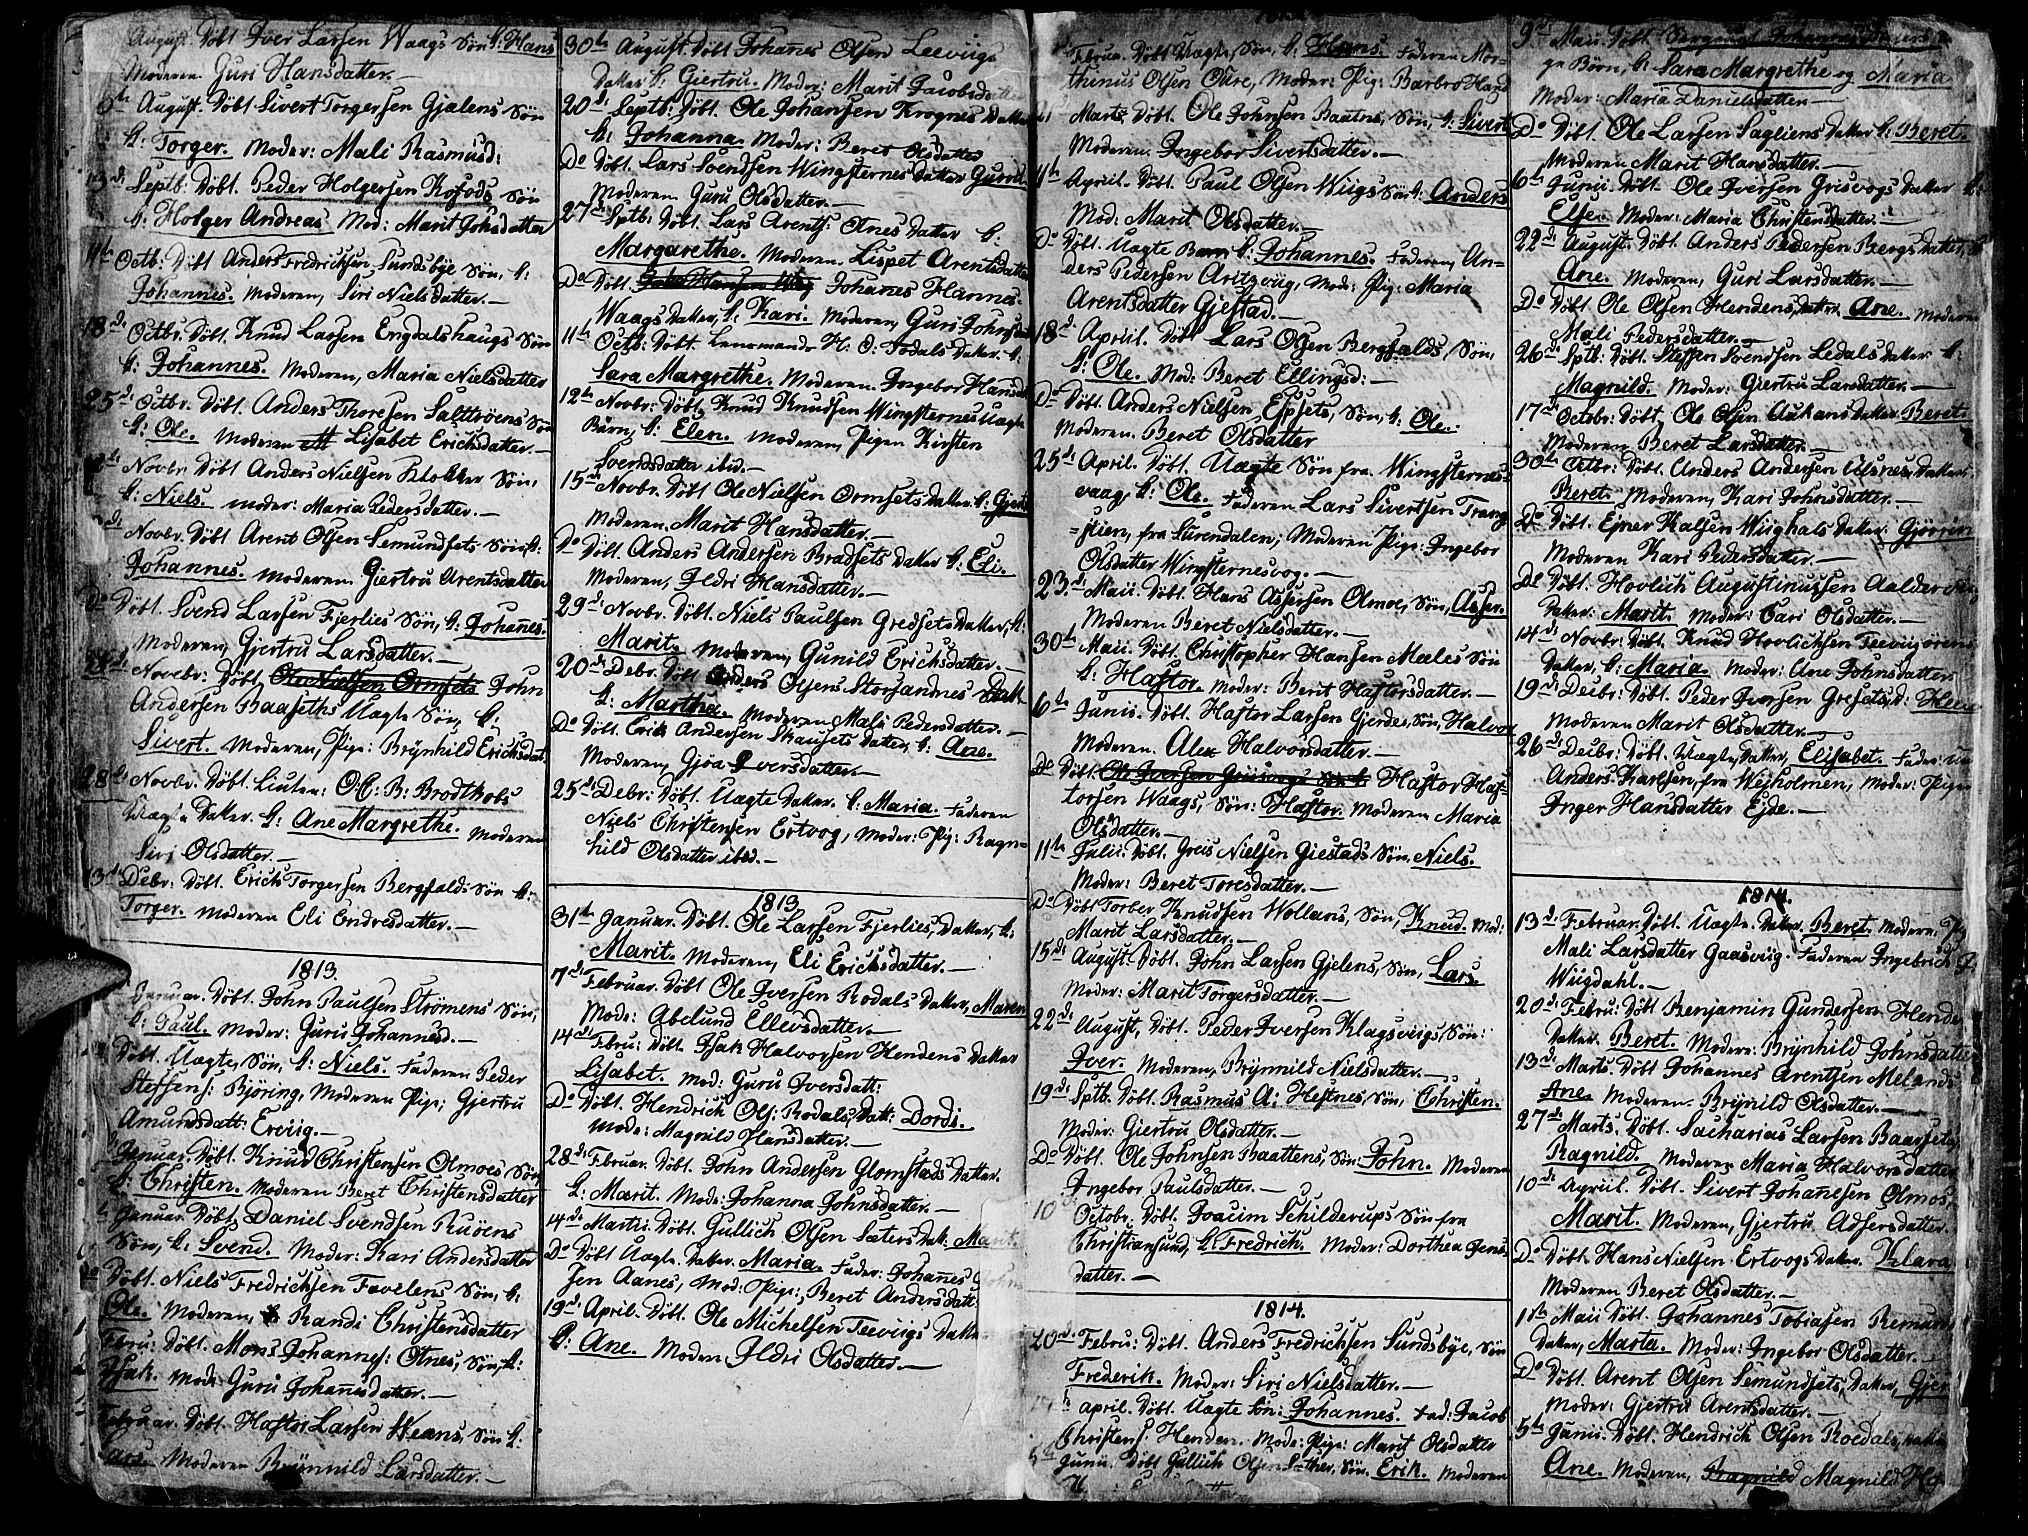 August. Döbt Iver Larsen Waags Sön k: Hans
Moderen. Guri Hansdatter.—
6th August. Döbt Sivert Torgersen Gjelens Sön
k: Torger. Moder: Mali Rasmusd:
13d: Septb: Döbt. Peder Holgersen Kofods Sön
k: Holger Andreas. Mod: Marit Johsdatter
11th Octb: Döbt Anders Fredrichsen Sundsbÿe Sön, k:
Johannes. Moderen, Siri Nielsdatter.—
18d: Octbr. Döbt. Knud Larsen Engdalshaugs Sön
k: Johannes. Moderen, Maria Nielsdatter
25d: Octbr. Döbt. Anders Thoresen Saltröens Sön
k: Ole. Moderen Lisabet Erichsdatter.—
Novbr. Döbt Anders Nielsen Klokker Sön,
k: Niels. moder: Maria Pedersdatter.—
Novbr. Döbt Arent Olsen Semundsets Sön k:
Johannes. Moderen Giertru Arentsdatter
Do Döbt. Svend Larsen Fjerlies Sön, k: Johanes.
Moderen, Gjertru Larsdatter.—
Novebr: Döbt, Ole Nielsen Ormsets John
Andersen Baaseths Uægte Sön, k:
Sivert. Moderen, Pige: Brÿnhild Erichsdat
28d: Novbr. Döbt. Liuten: O: C: B: Brodtkobs
Uægte Datter. k: Ane Margrethe. Moderen
Siri Olsdatter.—
13d: Debr: Döbt. Erich Torgersen Bergfalds Sön k:
Torger. Moderen Eli Endresdatter.—
1813.
Januar. Döbt. John Paulsen Strömens Sön,
k: Paul. Moder: Guru Johannesd.—
Döbt. Uægte, Sön, k: Niels. Faderen Peder
Steffens: Björing, Moderen Pige; Gjertru
Amundsdatt: Erviig.—
Januar. Döbt. Knud Christensen Olmoes Sön,
k: Christen. Moderen Beret Christensdatter
Januar. Döbt. Daniel Svendsen Ruöens
Sön, k: Svend. Moder: Kari Andersdatter
Do Döbt. Niels Fredrichsen Favelens Sön, k:
Ole. Moderen, Randi Christensdatter
Febru: Döbt. Mons Johannes: Otnes, Sön, k:
Isak. Mod: Guru Johanesdatter.—
Februar. Döbt. Hastor Larsen Sön k:
Lars. Moderen Brÿnnild Larsdatter.—
30th August. Döbt Johanes Olsen Leeviigs
Datter k: Giertru. Moder: Marit Jacobsdatter
20d: Septb: Döbt. Ole Johansen Krognes Datter
k: Johanna. Moder: Beret Olsdatter
Do Döbt. Lars Svendsen Wingsternes Datter Gurid
Moderen. Guru Olsdatter.—
27d: Sptb: Döbt. Lars Arents: Otnes Datter k:
Margarethe. Moderen. Lispet Arentsdatter
Do Döbt. Johanes Hannes-
Waags Datter, k: Kari. Moderen, Guri Johnsdatt
11th Octb: Döbt. Lensmands H: O: Todals Datter. k:
Sara Margrethe. Moderen. Ingebor Hansd
12th Novbr: Döbt. Knud Knudsen Wingsternes Uægte
Barn, k: Elen. moderen, Pigen Kirsten
Svendsdatter ibid.—
15d: Novbr. Döbt Ole Nielsen Ormsets Datter. k: Gjert
Moderen, Marit Hansdatter.—
Do Döbt. Anders Andersen Bradsets Datter k: Eli.
Moderen, Ildri Hansdatter.—
29d: Novbr. Döbt. Niels Paulsen Gredsets Datter, k:
Marit. Moderen, Gunild Erichsdatter.—
20de Debr. Döbt Anders Olsens Storsandnes Datt
k: Martha. Moderen Mali Pedersdatter.—
Do Döbt. Erik Andersen Skausets Datter, k: Ane.
Moderen, Gjöa Iversdatter.—
25d: Debr: Döbt. Uægte Datter. k: Maria. Faderen
Niels Christensen Ertvog, Moder: Pig: Ragn=
hild Olsdatter ibid.—
1813
31th Januar. Döbt. Ole Larsen Fjerlies, Datter, k:
Marit. Moderen, Eli Erichsdatter.—
7d: Februar. Döbt Ole Iversen Rodals Datter, Maren
Mod: Abelund Ellevsdatter.—
14d: Febru: Döbt. Isak Halvorsen Hendens Datter
Lisabet. Mod: Guru Iversdatt:
Do Döbt. Hendrich Ols: Rodals, Datt: Dordi.
Mod: Magnild Hansdatter.—
28d: Februar. Döbt. John Andersen Glomstads Datter.
k: Marit. Mod: Johanna Johnsdatter.—
14d: Marti: Döbt. Gullich Olsen Sæters Datt: Marit.
Do Döbt Uægte. Datter. Maria. Fader: Johanes
sen Aanes, Mod: Pige:, Beret Andersdatt:
19d: April. Döbt. Ole Michelsen Teeviigs Datter
k: Ane. Moder: Ildri Olsdatter.—
Februar. Döbt Uægte, Sön, k: Hans. Faderen Mor-
thinus Olsen Otne, Moder: Pig: Barbro Hansd
Marts. Döbt. Ole Johnsen Baatne, Sön, k: Sivert
Moderen. Ingebor Sivertsdatter.—
11th Apriil. Döbt. Paul Olsen Wiigs Sön k: Anders
Mod: Marit Olsdatter.—
Do Döbt. Uægte Barn k: Johannes. Faderen, An-
ders Pedersen Aritzviig, Mod: Pig: Maria
Arentsdatter Gjestad.—
18d: Apriil. Döbt Lars Olsen Bergfalds, Sön,
k: Ole. Mod: Beret Ellingsd:—
Do Döbt. Anders Nielsen Espsets, Sön, k: Ole.
Moderen. Beret Olsdatter
25d: April. Döbt. Uægte Sön fra Wingsternes-
vaag, k: Ole. Faderen Lars Sivertsen Trang
=slien, fra Surendalen; Moderen Pige: Ingebor
Olsdatter Wingsternesvog.—
23d: Maii. Döbt. Hans Assersen Olmoe, Sön, Asser.
Moderen Beret Nielsdatter.—
30th Maii. Döbt. Christopher Hansen Mæles Sön
k: Hastor. Moder: Berit Hastorsdatter.—
6d: Junii. Döbt. Hastor Larsen Gjerde, Sön, Halvor
Moderen. Alex Halvorsdatter.—
Do Döbt. Ole Iversen Griisvogs Sön k: Hastor Has-
torsen Waags, Sön: Hastor. Moderen Maria
Olsdatter.—
11th Julii: Döbt. Greis Nielsen Giestads Sön, Niels.
Moder: Beret Toresdatter.—
Do Döbt Torber Knudsen Wollans, Sön, Knud. Mod:
Marit Larsdatter.—
15d: August. Döbt. John Larsen Gjelens, Sön, Lars.
Moder: Marit Torgersdatter.—
22d: August, Döbt. Peder Iversen Klagsviigs, Sön:
Iver. Moderen, Brÿnnild Nielsdatter.—
19d: Sptb: Döbt. Rasmus A: Hestnes, Sön, Christen.
Moder: Giertru Olsdatter.—
Do Döbt. Ole Johnsen Baattens, Sön John. Moderen
Ingebor Paulsdatter.—
10 Octobr: Döbt. Joacim Schilderups Sön fra
Christiansund, k: Fredrich. Moder: Dorthea Jens
datter.—
1814.
20d: Febru: Döbt. Anders Fredrichsen Sundsbÿe, Sön
Frederik. Moder: Siri Nielsdatter.—
april. Döbt. Uægte Sön: Johannes. Fad: Jacob
Christens: Henden. Mod: Pige: Marit Olsdatter
5th Junii. Döbt Gullich Olsen Sæther, Sön. Erik. Moderen
9d: Maii. Döbt Sergeant
ge Börn, k: Sara Margrethe og Maria
Moder: Maria Danielsdatter.—
Do Döbt. Ole Larsen Sagliens Datter k: Beret.
Moderen Marit Hansdatter.—
6th Junii. Döbt. Ole Iversen Grisvogs Datter k:
Else. Moder: Maria Christensdatter.—
22d: August. Döbt. Anders Pedersen Bergs Datter, k:
Ane. Moderen, Guri Larsdatter.—
Do Döbt Ole Olsen Hendens, Datter Ane. Moderen
Mali Pedersdatter.—
26d: Sptb: Döbt. Steffen Svendsen Ledals Datter k:
Magnild. Moder: Gjertru Larsdatter.—
17d: Octobr: Döbt. Ole Olsen Aukans Datter Beret.
Moderen. Beret Larsdatter.—
30th Octbr: Döbt. Anders Andersen Datter.
Beret. Moderen, Kari Johnsdatter.—
Do Döbt. Ejner Kalsen Wiighals Datter. Gjörrin
Moderen Kari Pedersdatter.—
Do Döbt. Hovlich Augustinussen Aalder
Datter. Marit. Moder: Cari Olsdatter.—
14d: Novbr: Döbt. Knud Hovlichsen Teeviigörens
Datter. k: Maria. Moder: Ane Johnsdatter.
19d: Decbr: Döbt. Peder Iversen Gresets, D:
Moderen Marit Olsdatter.—
26d: Decbr: Döbt. Uægte, Datter, Elisabet. Fader:
Anders Karlsen, fra Wejholmen, Moder: Pigen
Inger Hansdatter Ejde.—
1814.
13d: Februar: Döbt. Uægte. Datter. Beret. Moderen. Pig
Mali Larsdatter Gaasviig. Faderen Ingebrich
Wiigdahl.—
20d: Febru: Döbt Benjamin Gundersen Hende
Datter. Beret. Moderen: Brÿnhild Johnsdatter
13d: Marts. Döbt Johannes Arentsen Melands
Ane. Moderen. Brÿnild Olsdatter.—
27d: Marts. Döbt. Sacharias Larsen Baarsets,
Ragnild. Moderen Maria Halvorsdatter
10d: Apriil. Döbt. Sivert Johanesen Olmos,
Marit. Moderen, Gjertru Adsersdatter.
Do Döbt. Hans Nielsen Ertvogs Datter. Klara
Moderen Beret Olsdatter.—
11th Maii Döbt. Johannes Tobiasen Remund
Datter, Marta. Moder: Ingebor Olsdatter.—
Do Döbt. Arent Olsen Semundsets, Datter, Gjer
Moder: Gjertru Arentsdatter.—
5th Junii: Döbt. Hendrich Olsen Roedals, Datter
Ane. Moderen, Ragnild Magnild